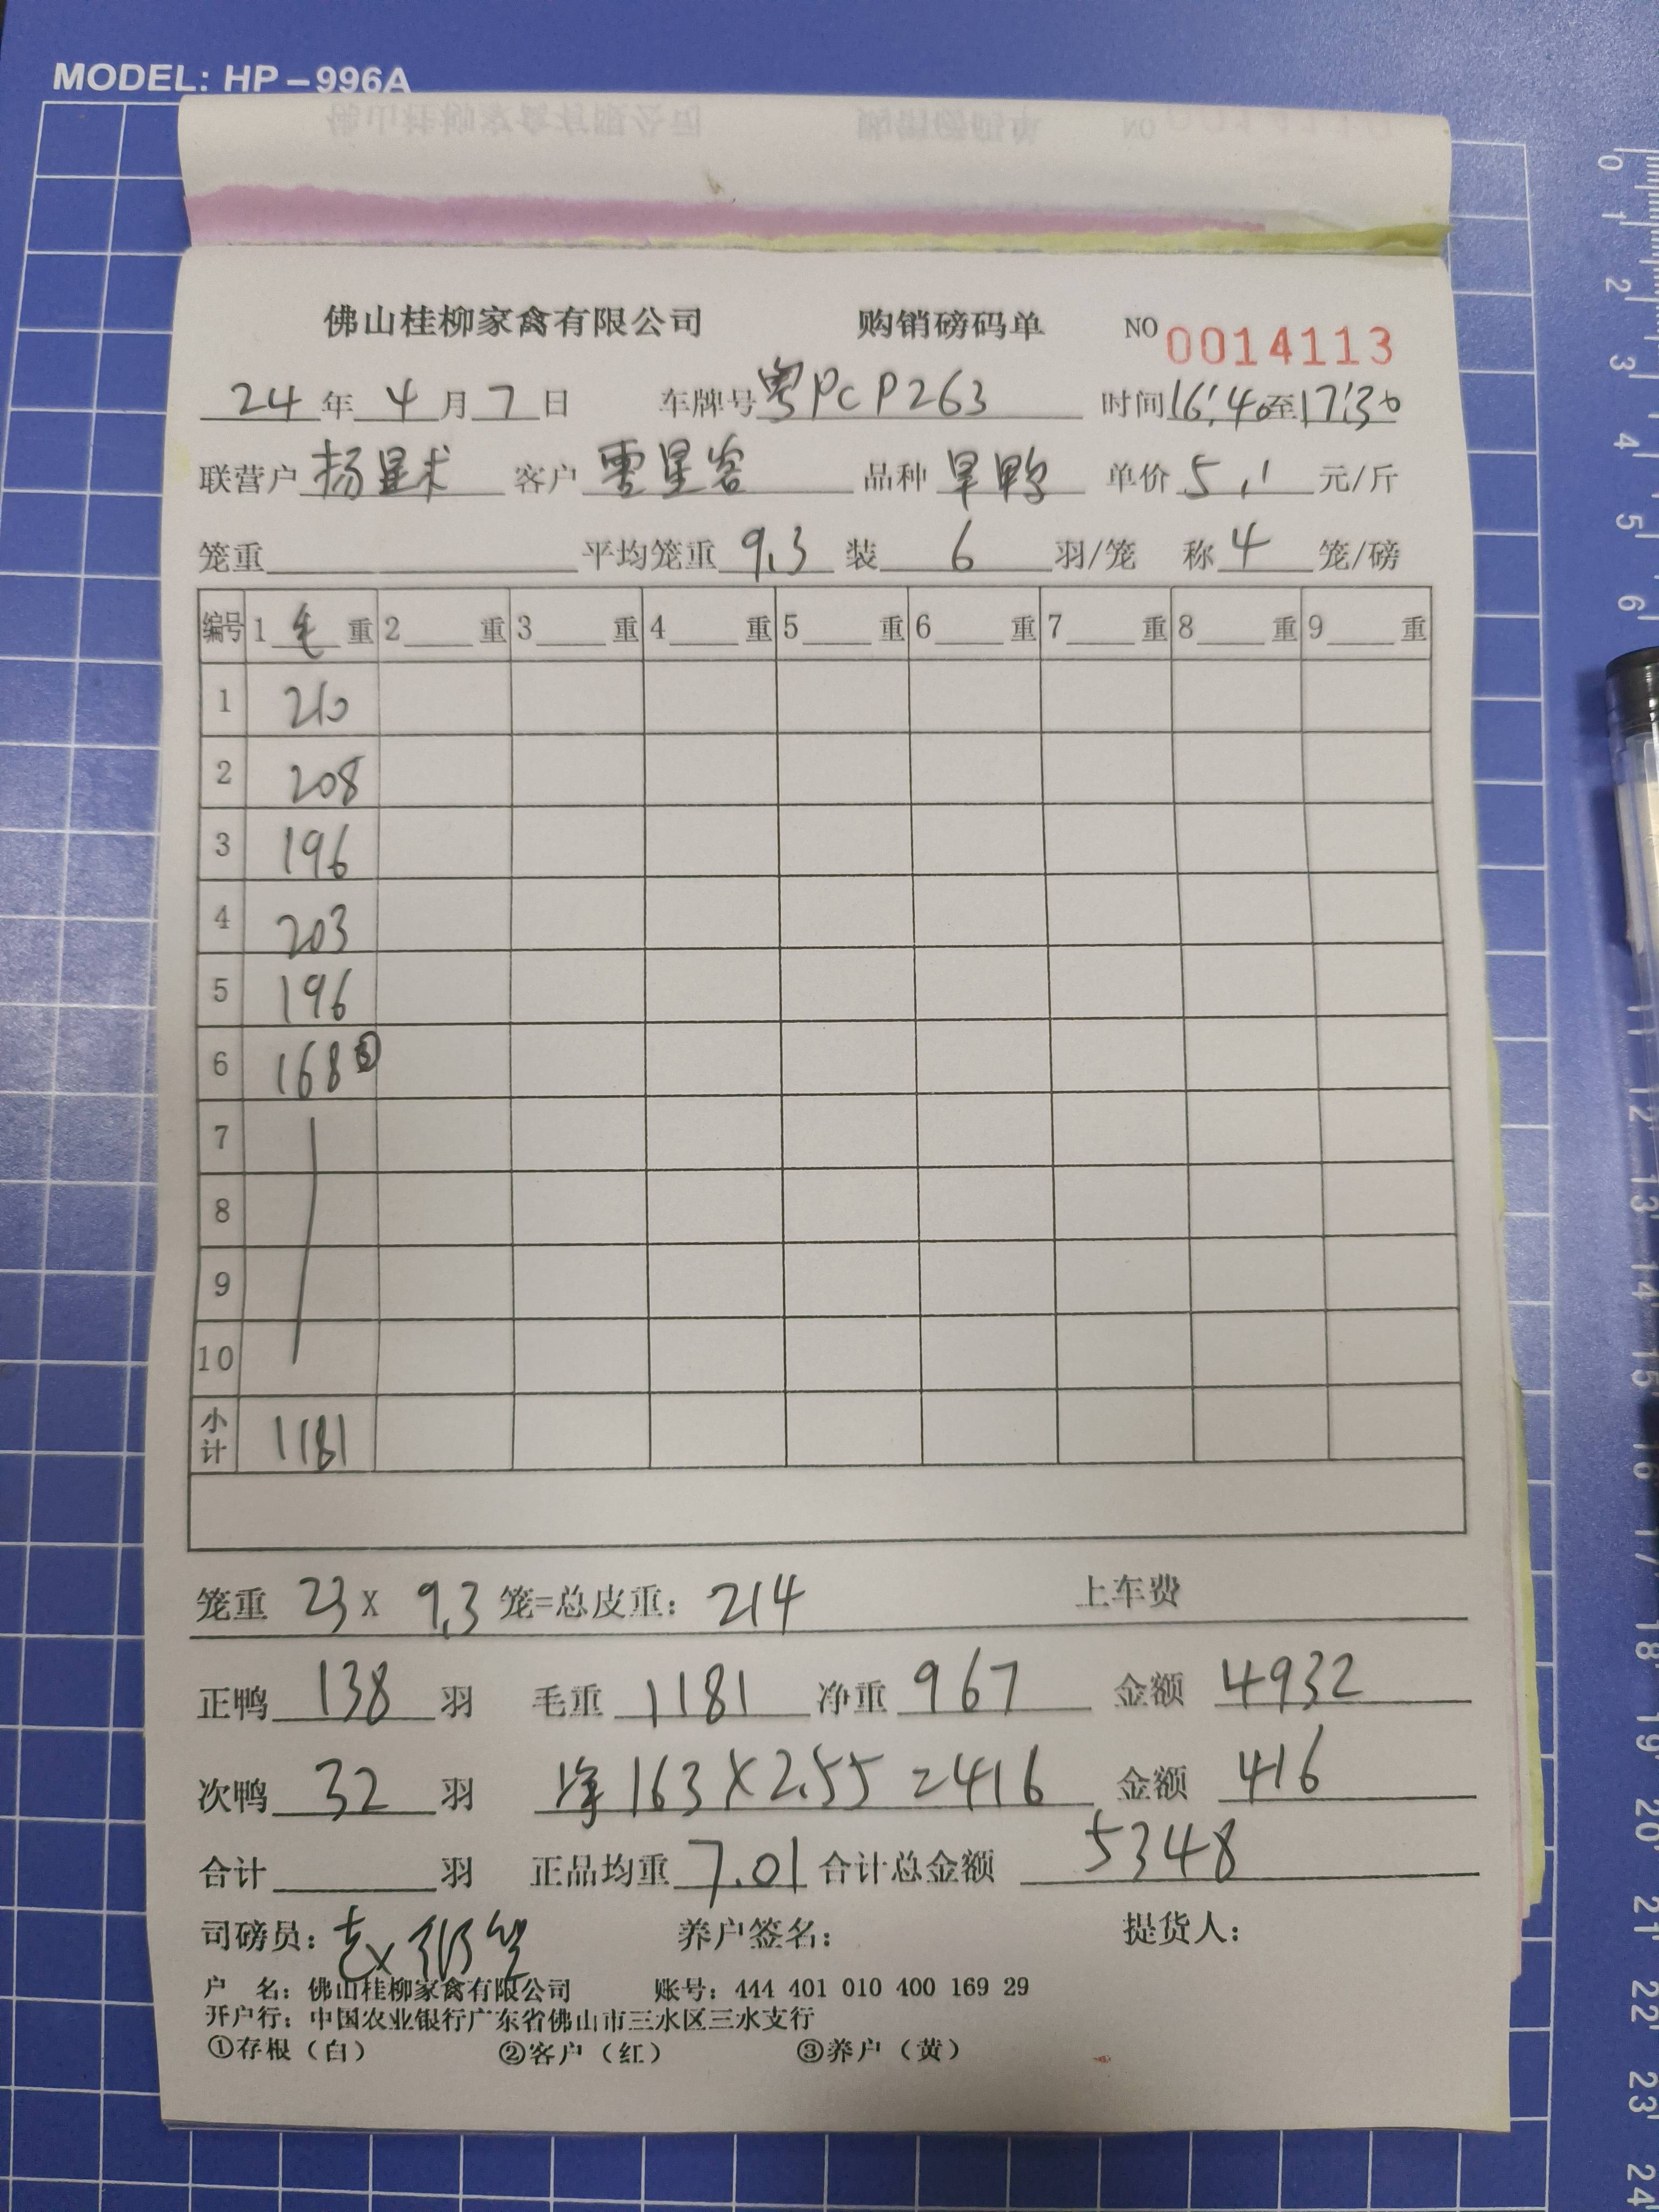 MODEL: HP-996A
佛山桂柳家禽有限公司 购销磅码单 NO 0014113
24年4月7日 车牌号粤PCP263 时间16:40至17:30
联营户 杨星术 客户 零星客 品种 旱鸭 单价 5.1 元/斤
笼重 平均笼重 9.3 装 6 羽/笼 称 4 笼/磅
编号 1 毛 重 2 重 3 重 4 重 5 重 6 重 7 重 8 重 9 重
1 210
2 208
3 196
4 203
5 196
6 168 ③
7
8
9
10
小计 1181
笼重 23 X 9.3 笼=总皮重: 214 上车费
正鸭 138 羽 毛重 1181 净重 967 金额 4932
次鸭 32 羽 净 163 X 2.55 = 416 金额 416
合计 羽 正品均重 7.01 合计总金额 5348
司磅员: 养户签名: 提货人:
户 名: 佛山桂柳家禽有限公司 账号: 444 401 010 400 169 29
开户行: 中国农业银行广东省佛山市三水区三水支行
①存根（白） ②客户（红） ③养户（黄）
0
1
2
3
4
5
6
11
12
13
14
15
16
17
18
19
20
21
22
23
24